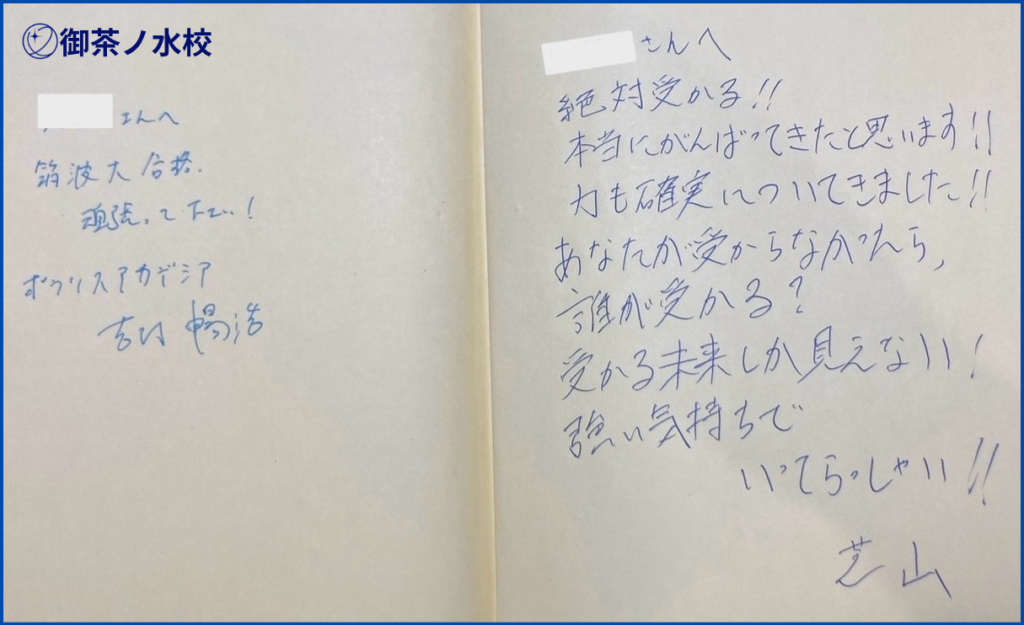 御茶ノ水校
さんへ
筑波大 合格、
頑張って下さい!
ポラリスアカデミア
吉村 暢浩
さんへ
絶対受かる!!
本当にがんばってきたと思います!!
力も確実についてきました!!
あなたが受からなかったら、
誰が受かる?
受かる未来しか見えない!
強い気持ちで
いってらっしゃい!!
芝山